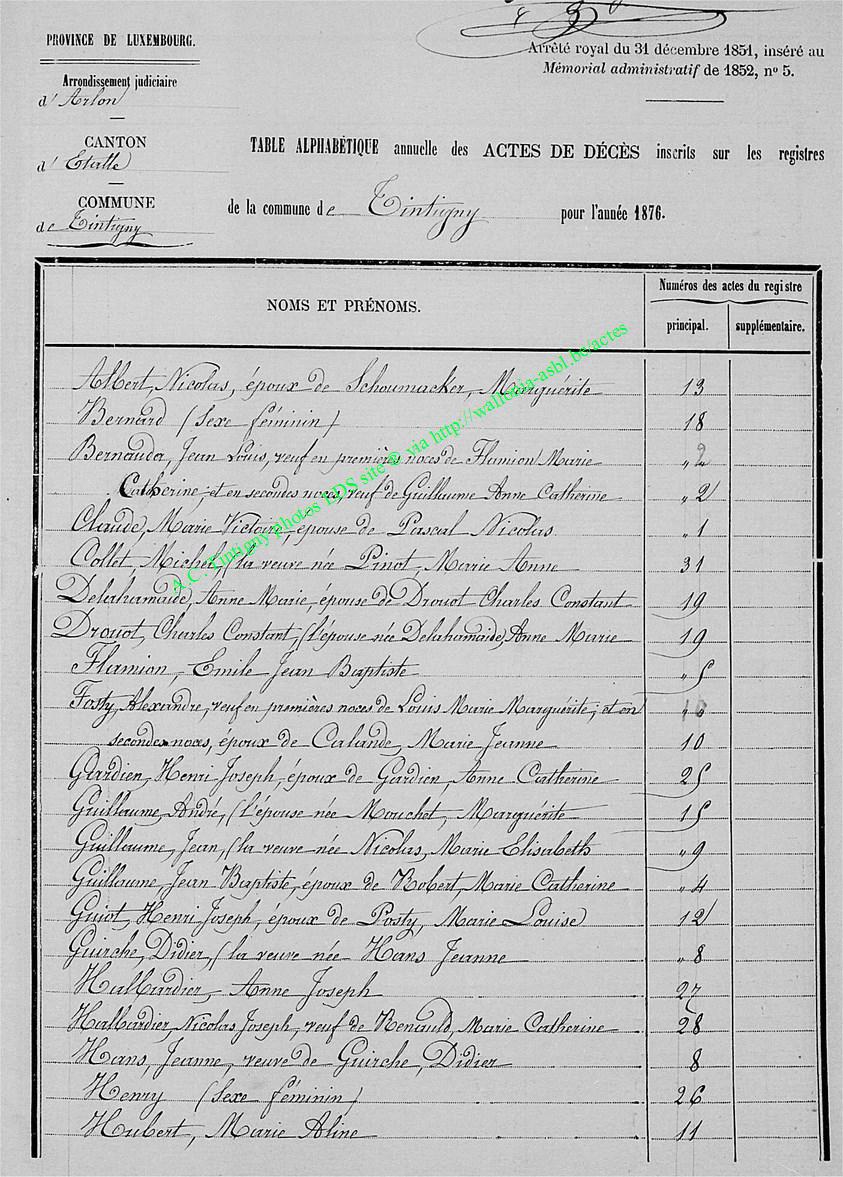 PROVINCE DE LUXEMBOURG.
Arrêté royal du 31 décembre 1851, inséré au
Mémorial administratif de 1852, n° 5.
Arrondissement judiciaire
d'Arlon
CANTON
d'Etalle
COMMUNE
de Tintigny
TABLE ALPHABÉTIQUE annuelle des ACTES DE DÉCÈS inscrits sur les registres
de la commune de Tintigny pour l'année 1876.
NOMS ET PRÉNOMS.
Numéros des actes du registre
principal. supplémentaire.
Albert, Nicolas, époux de Schoumacker, Marguérite 13
Bernard (sexe féminin) 18
Bernauda, Jean Louis, veuf en premières noces de Flamion Marie
Catherine, et en secondes noces, veuf de Guillaume Anne Catherine " 2
Claude, Marie Victoire, épouse de Pascal Nicolas " 1
Collet Michel, (la veuve née Pinot, Marie Anne 31
Delahamaide, Anne Marie, epouse de Drouot Charles Constant 19
Drouot, Charles Constant, (l'épouse née Delahamaide, Anne Marie 19
Flamion, Emile Jean Baptiste " 5
Fosty, Alexandre, veuf en premières noces de Louis Marie Marguérite, et en
secondes noces, époux de Calande, Marie Jeanne 10
Gardien, Henri Joseph, époux de Gardien, Anne Catherine 25
Guillaume, André, (l'épouse née Mouchet, Marguérite 15
Guillaume, Jean, (la veuve née Nicolas, Marie Elisabeth " 9
Guillaume, Jean Baptiste, époux de Robert, Marie Catherine " 4
Guiot, Henri Joseph, époux de Posty, Marie Louise 12
Guirche, Didier, (la veuve née Hans Jeanne " 8
Halbardier, Anne Joseph 27
Halbardier, Nicolas Joseph, veuf de Renauld, Marie Catherine 28
Hans, Jeanne, veuve de Guirche, Didier 8
Henry (sexe féminin) 26
Hubert, Marie Aline 11
A.C. Tintigny photos LDS site © via http://wallonia-asbl.be/actes